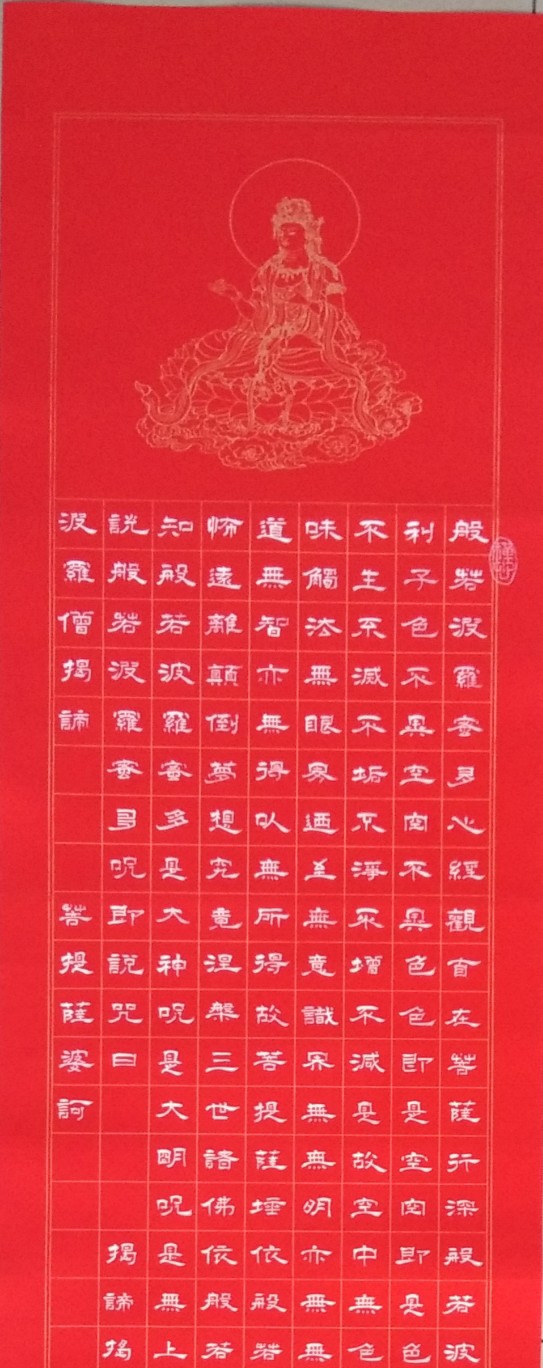 般若波羅蜜多心經觀自在菩薩行深般若波
利子色不異空空不異色色即是空空即是色
不生不滅不垢不淨不增不減是故空中無色
味觸法無眼界迺至無意識界無無明亦無無
道無智亦無得以無所得故菩提薩埵依般若
怖遠離顛倒夢想究竟涅槃三世諸佛依般若
知般若波羅蜜多是大神呪是大明呪是無上
說般若波羅蜜多呪即說咒曰 揭諦揭
波羅僧揭諦 菩提薩婆訶